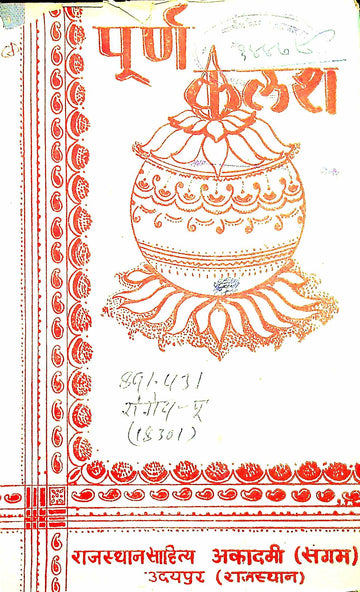 पूर्ण
कलश
891.431
(18301)
राजस्थान साहित्य अकादमी (संगम)
उदयपुर (राजस्थान)